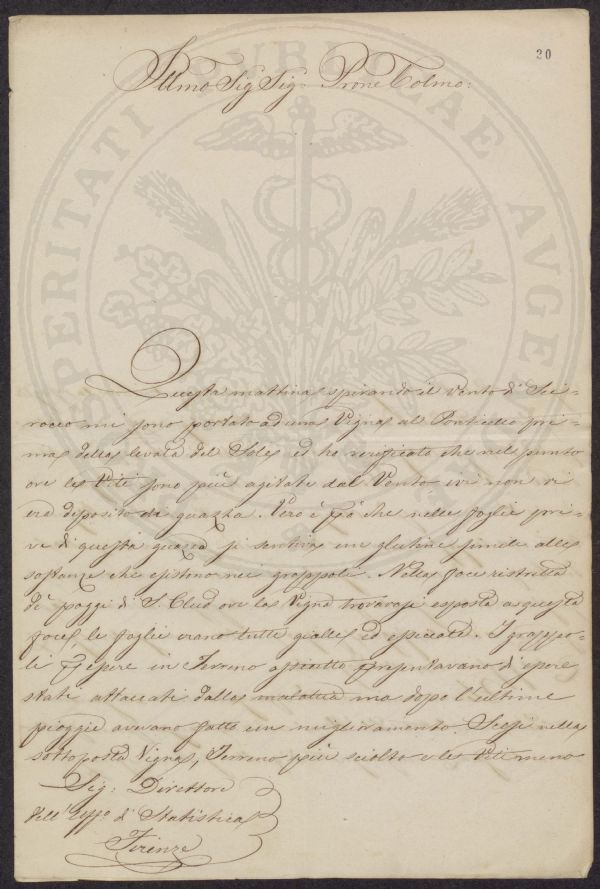 30
Illmo Sig Sig: Prone Colmo:
Questa mattina spirando il Vento di Sci=
rocco mi sono portato ad una Vigna al Ponticello pri=
ma della levata del Sole ed ho verificato che nel punto
ove le Viti sono più agitate dal Vento ivi non vi
era deposito di guazza. Vero è che nelle foglie pri=
ve di questa guazza si sentiva un glutine simile alle
sostanze che esistino nei grappoli. Nella foce ristretta
de' poggi di S. ove la Vigna trovavasi esposta a questa
foce, le foglie erano tutte gialle ed essiccate. I grappo=
li essere in Terreno asciutto presentavano d'essere
stati attaccati dalla malattia ma dopo l'ultime
pioggie avevano fatto un miglioramento. Scesi nella
sottoposta Vigna, Terreno più sciolto e le Viti meno
Sig: Direttore
dell'Uffo. di Statistica
Firenze
PROSPERITATI PUBLICAE AUGE